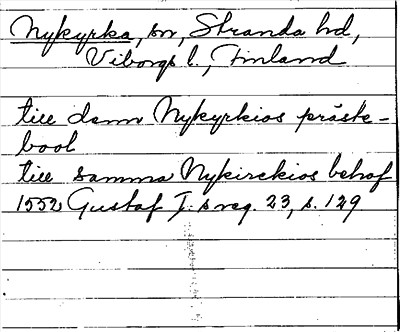 Nykyrka, sn, Stranda hd,
Viborgs l., Finland
till denn Nykyrkios präste-
bool
till samma Nykirckios behof
1552 Gustaf I:s reg. 23, s. 129